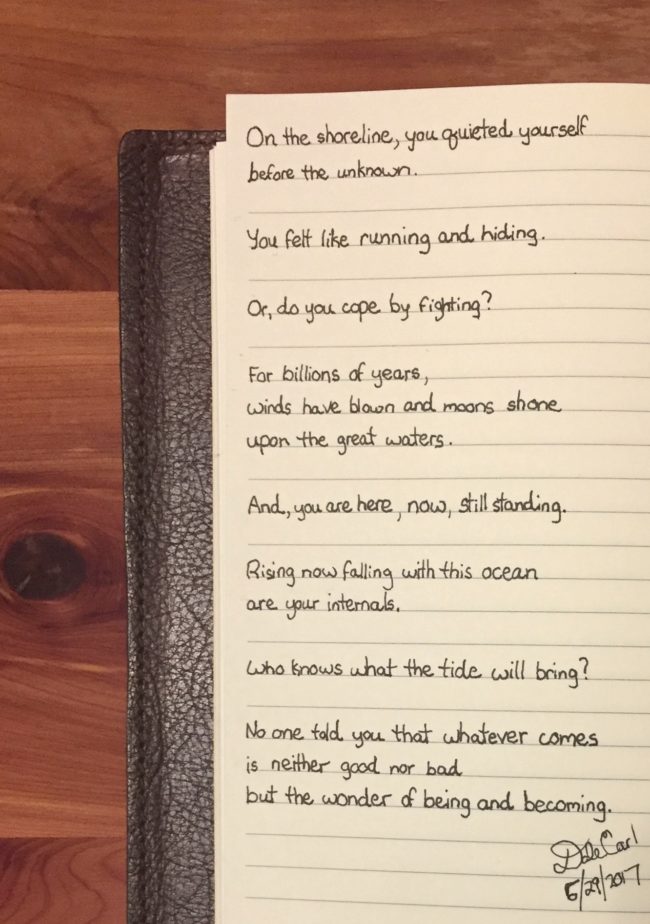 On the shoreline, you quieted yourself
before the unknown.
You felt like running and hiding.
Or, do you cope by fighting?
For billions of years,
winds have blown and moons shone
upon the great waters.
And, you are here, now, still standing.
Rising now falling with this ocean
are your internals.
Who knows what the tide will bring?
No one told you that whatever comes
is neither good nor bad
but the wonder of being and becoming.
Dale Carl
5/29/2017